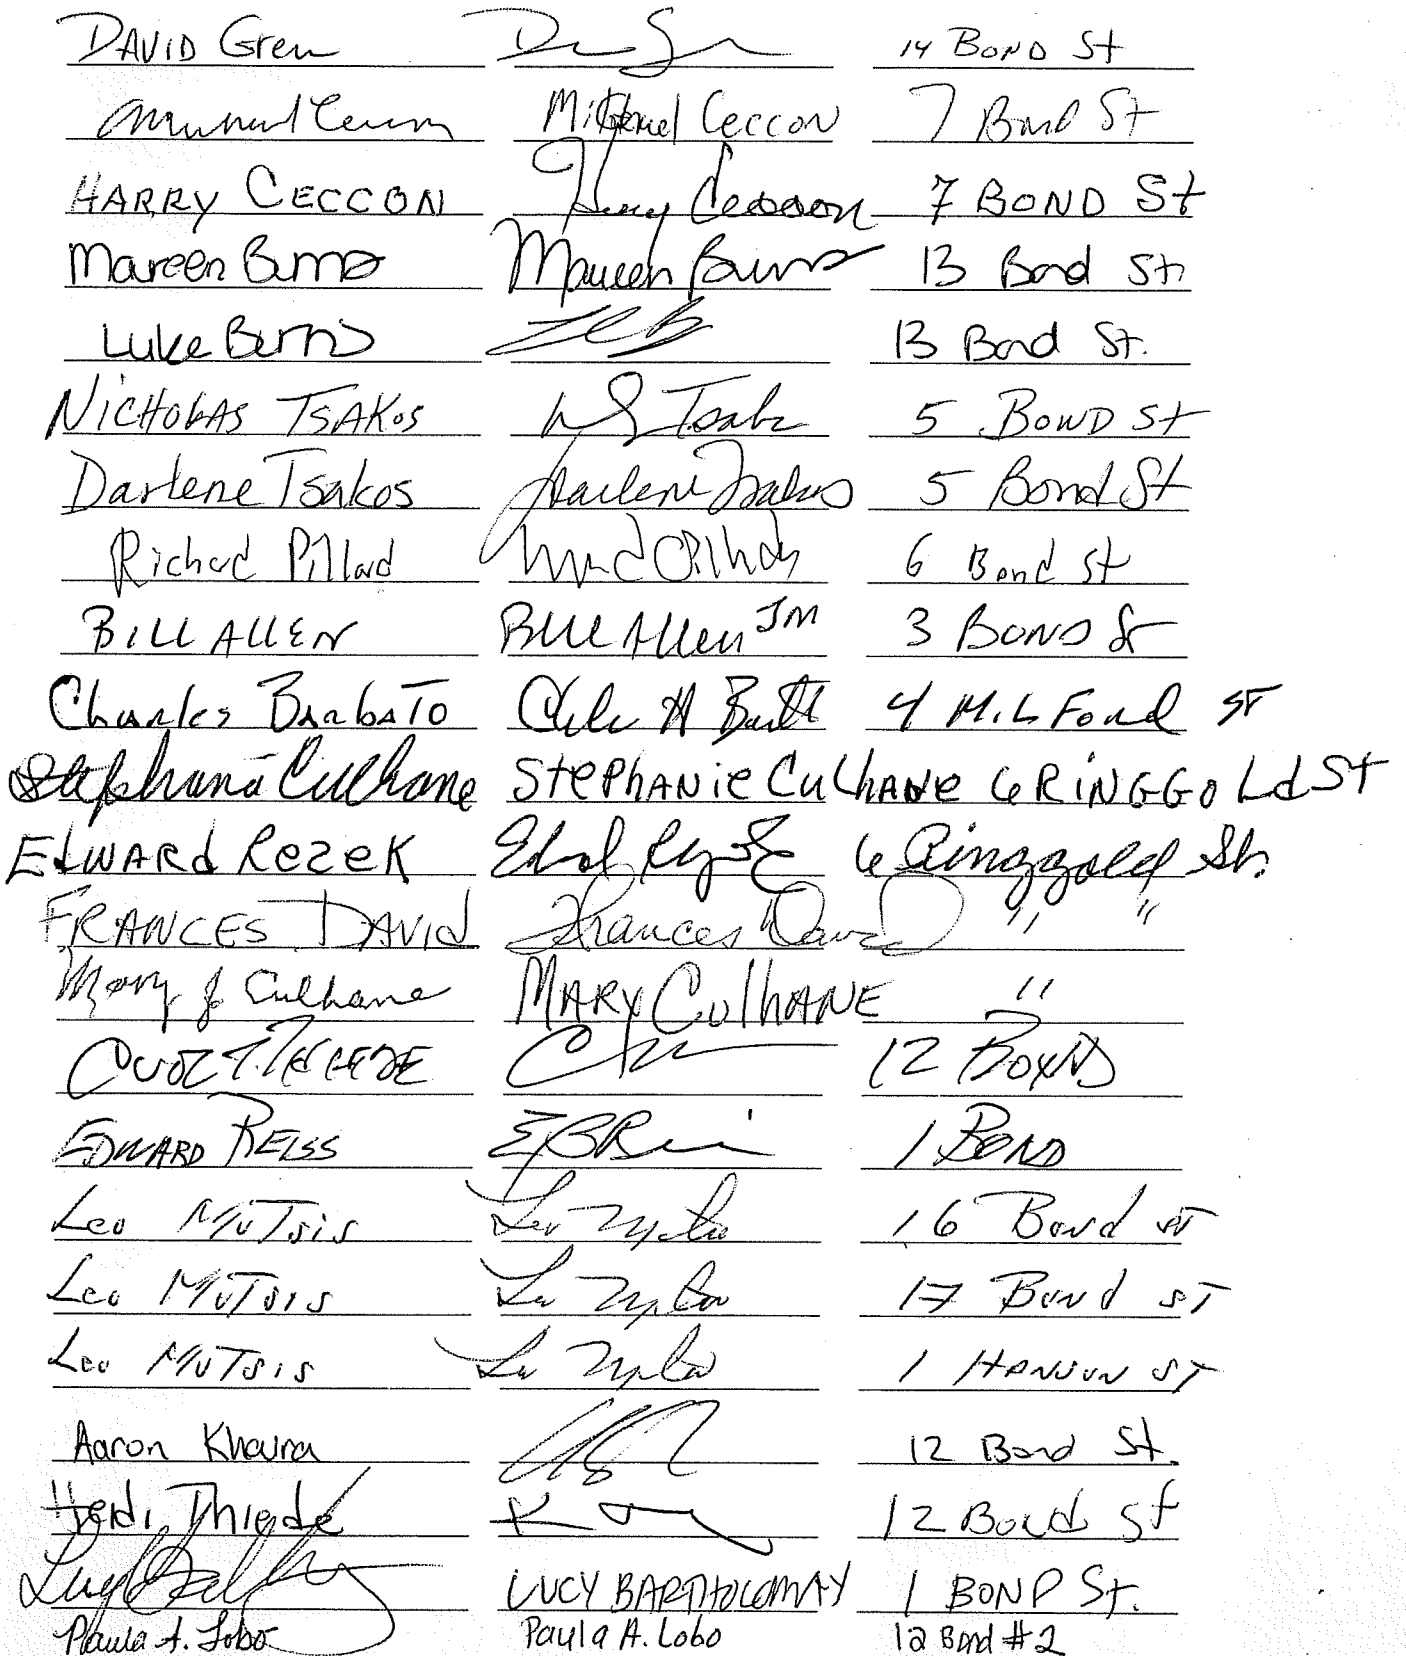 DAVID Gren 14 BOND St
Michael Ceccon 7 Bond St
HARRY CECCON Harry Ceccon 7 BOND St
Maureen Burns Maureen Burns 13 Bond St.
Luke Burns 13 Bond St.
NICHOLAS TSAKOS Tsakos 5 BOND St
Darlene Tsakos Darlene Tsakos 5 Bond St
Richard Pillard 6 Bond St
BILL ALLEN Bill Allen 3 BOND St
Charles BarbaTo 4 MilFord ST
Stephanie Culhane StePHANie CuLhANe 6 RiNGGoLd St
EdWARd Rezek 6 Ringgold St.
FRANCES DAVId Frances David " "
Mary J Culhane MARY CulhANE "
12 BOND
EDWARD REISS 1 BOND
Leo MuTsis 16 Bond ST
Leo MuTsis 17 Bond ST
Leo MuTsis 1 HANSON ST
Aaron Khaura 12 Bond St.
Heidi Thiede 12 Bond St
LUCY BARTHOLOMAY 1 BOND St.
Paula A. Lobo Paula A. Lobo 12 Bond #2